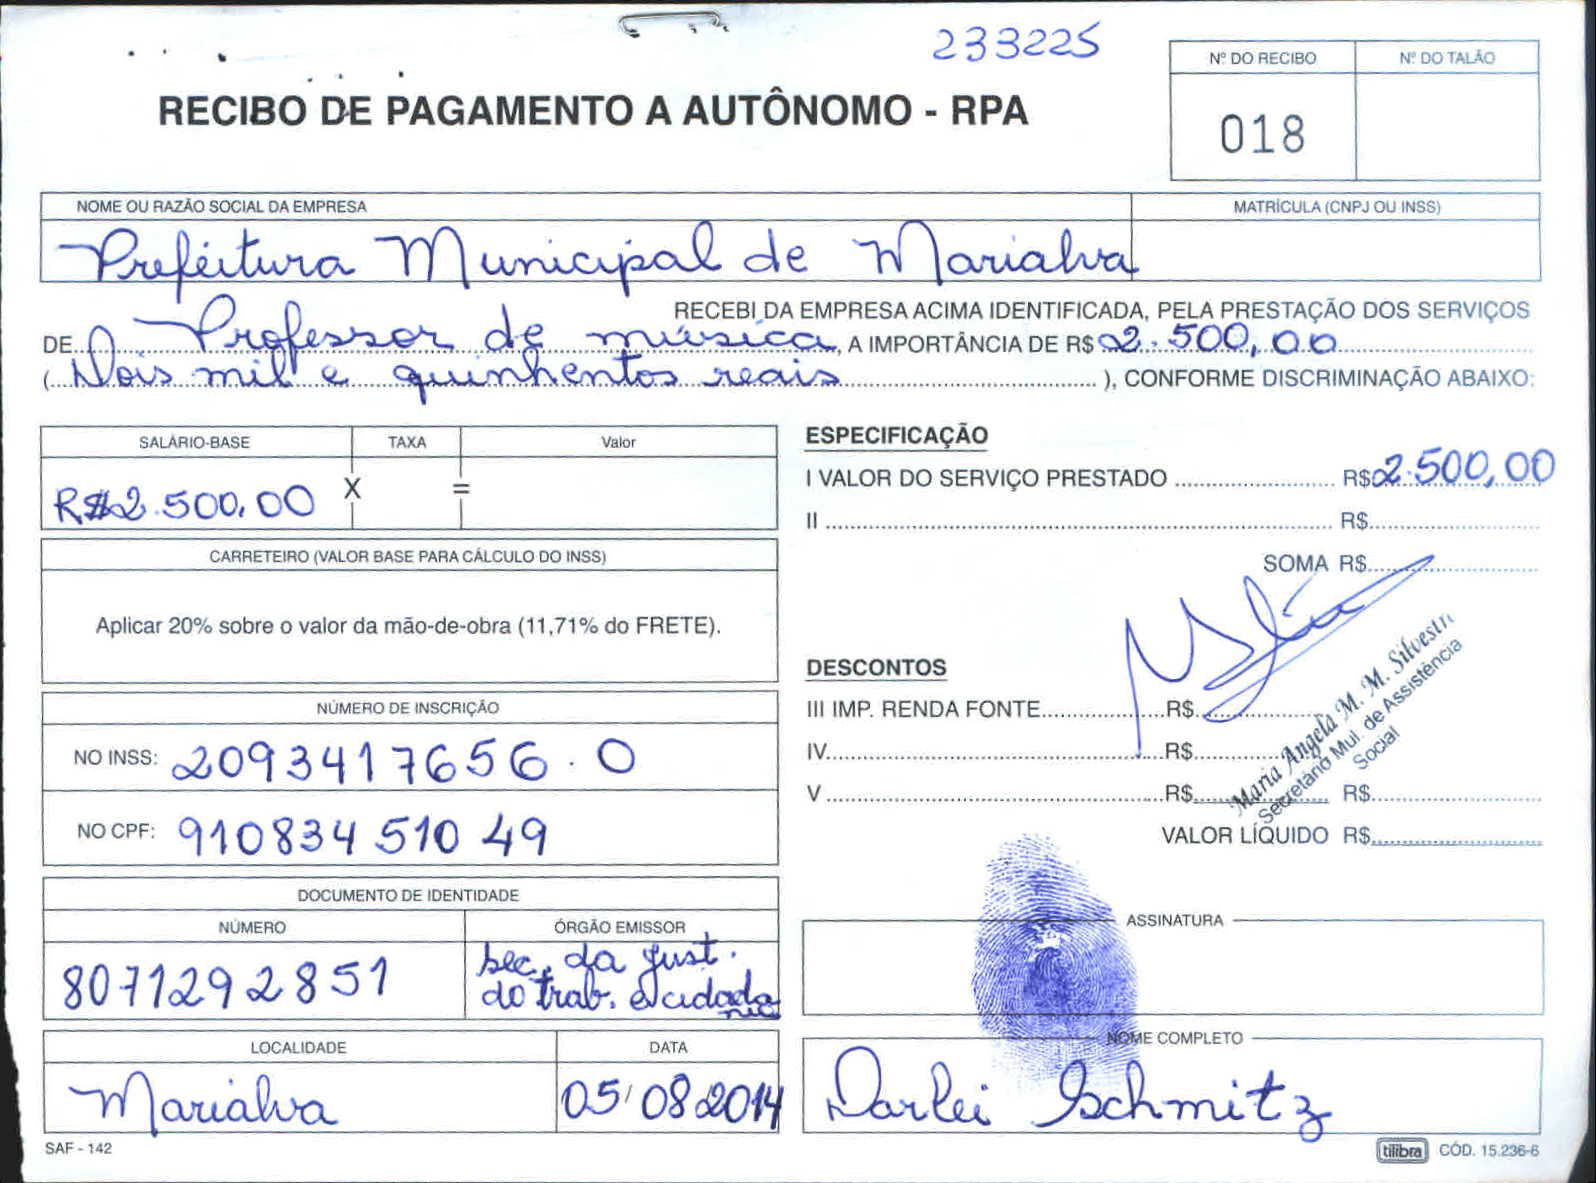 233225
Nº DO RECIBO
Nº DO TALÃO
RECIBO DE PAGAMENTO A AUTÔNOMO - RPA
018
NOME OU RAZÃO SOCIAL DA EMPRESA
MATRÍCULA (CNPJ OU INSS)
Prefeitura Municipal de Marialva
RECEBI DA EMPRESA ACIMA IDENTIFICADA, PELA PRESTAÇÃO DOS SERVIÇOS
DE Professor de música, A IMPORTÂNCIA DE R$ 2.500,00
( Dois mil e quinhentos reais ), CONFORME DISCRIMINAÇÃO ABAIXO:
SALÁRIO-BASE TAXA Valor
R$ 2.500,00 X =
CARRETEIRO (VALOR BASE PARA CÁLCULO DO INSS)
Aplicar 20% sobre o valor da mão-de-obra (11,71% do FRETE).
NÚMERO DE INSCRIÇÃO
NO INSS: 2093417656.0
NO CPF: 910834 510 49
DOCUMENTO DE IDENTIDADE
NÚMERO ÓRGÃO EMISSOR
8071292851
sec. da just.
do trab. e cidada
nia
LOCALIDADE DATA
Marialva 05/08 2014
SAF - 142
ESPECIFICAÇÃO
I VALOR DO SERVIÇO PRESTADO R$ 2.500,00
II R$
SOMA R$
DESCONTOS
III IMP. RENDA FONTE R$
IV R$
V R$ R$
VALOR LÍQUIDO R$
Maria Angela M. M. Silvestri
Secretário Mul. de Assistência
Social
ASSINATURA
NOME COMPLETO
Darlei Schmitz
tilibra CÓD. 15.236-6